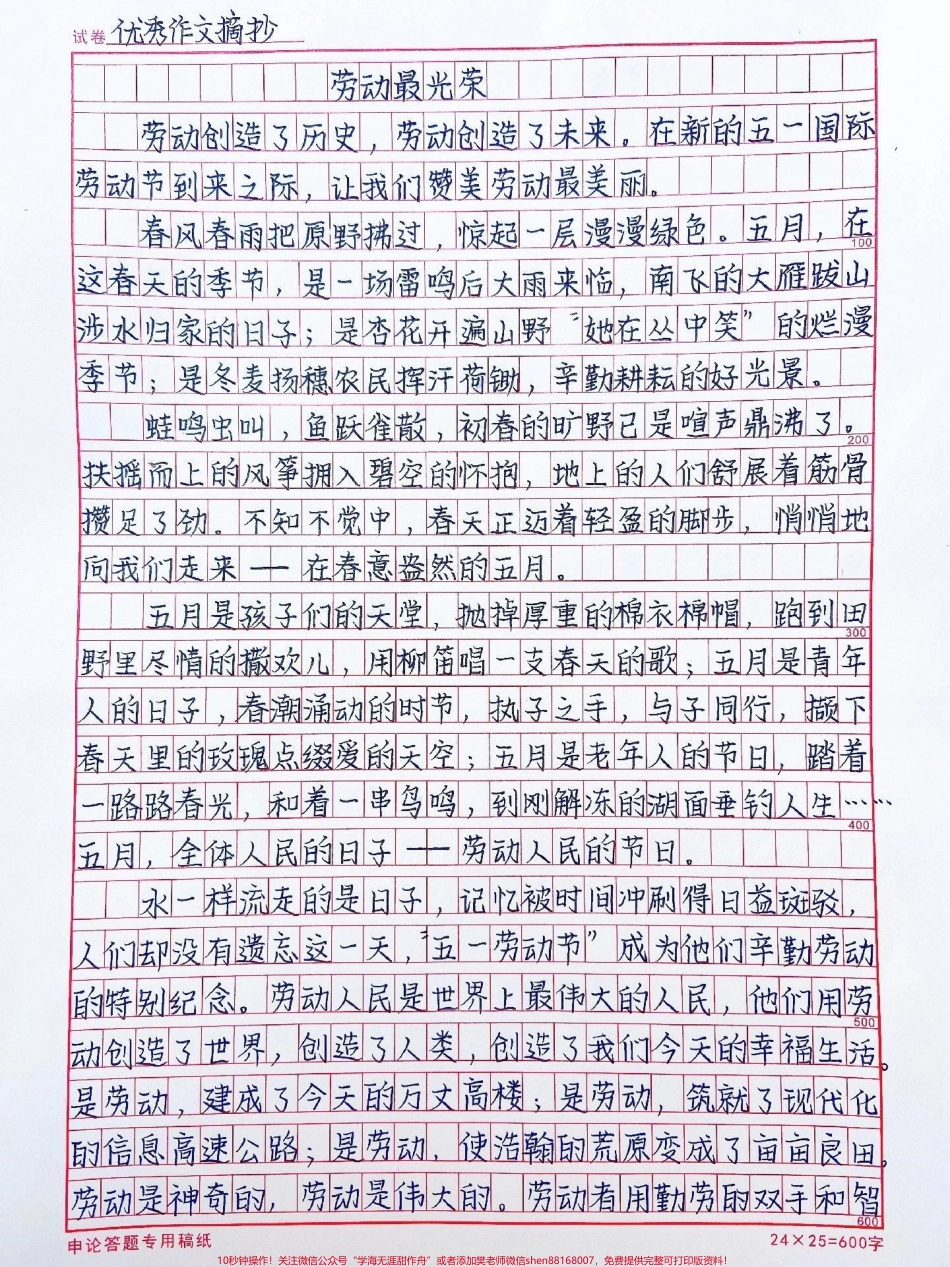 试卷 优秀作文摘抄
劳动最光荣
劳动创造了历史，劳动创造了未来。在新的五一国际
劳动节到来之际，让我们赞美劳动最美丽。
春风春雨把原野拂过，惊起一层漫漫绿色。五月，在
100
这春天的季节，是一场雷鸣后大雨来临，南飞的大雁跋山
涉水归家的日子；是杏花开遍山野“她在丛中笑”的烂漫
季节；是冬麦扬穗农民挥汗荷锄，辛勤耕耘的好光景。
蛙鸣虫叫，鱼跃雀散，初春的旷野已是喧声鼎沸了。
200
扶摇而上的风筝拥入碧空的怀抱，地上的人们舒展着筋骨
攒足了劲。不知不觉中，春天正迈着轻盈的脚步，悄悄地
向我们走来——在春意盎然的五月。
五月是孩子们的天堂，抛掉厚重的棉衣棉帽，跑到田
300
野里尽情的撒欢儿，用柳笛唱一支春天的歌；五月是青年
人的日子，春潮涌动的时节，执子之手，与子同行，撷下
春天里的玫瑰点缀爱的天空；五月是老年人的节日，踏着
一路路春光，和着一串鸟鸣，到刚解冻的湖面垂钓人生……
400
五月，全体人民的日子——劳动人民的节日。
水一样流走的是日子，记忆被时间冲刷得日益斑驳，
人们却没有遗忘这一天，“五一劳动节”成为他们辛勤劳动
的特别纪念。劳动人民是世界上最伟大的人民，他们用劳
500
动创造了世界，创造了人类，创造了我们今天的幸福生活。
是劳动，建成了今天的万丈高楼；是劳动，筑就了现代化
的信息高速公路；是劳动，使浩翰的荒原变成了亩亩良田。
劳动是神奇的，劳动是伟大的。劳动者用勤劳的双手和智
600
申论答题专用稿纸 24×25=600字
10秒钟操作！关注微信公众号“学海无涯甜作舟”或者添加樊老师微信shen88168007，免费提供完整可打印版资料！